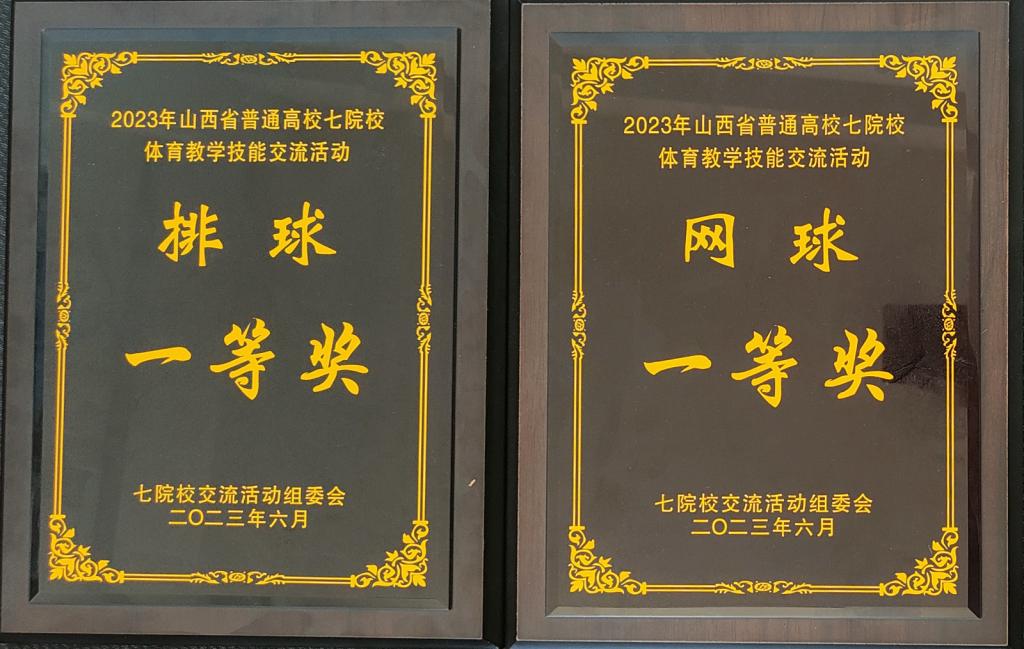 2023年山西省普通高校七院校
体育教学技能交流活动
排球
一等奖
七院校交流活动组委会
二〇二三年六月
2023年山西省普通高校七院校
体育教学技能交流活动
网球
一等奖
七院校交流活动组委会
二〇二三年六月